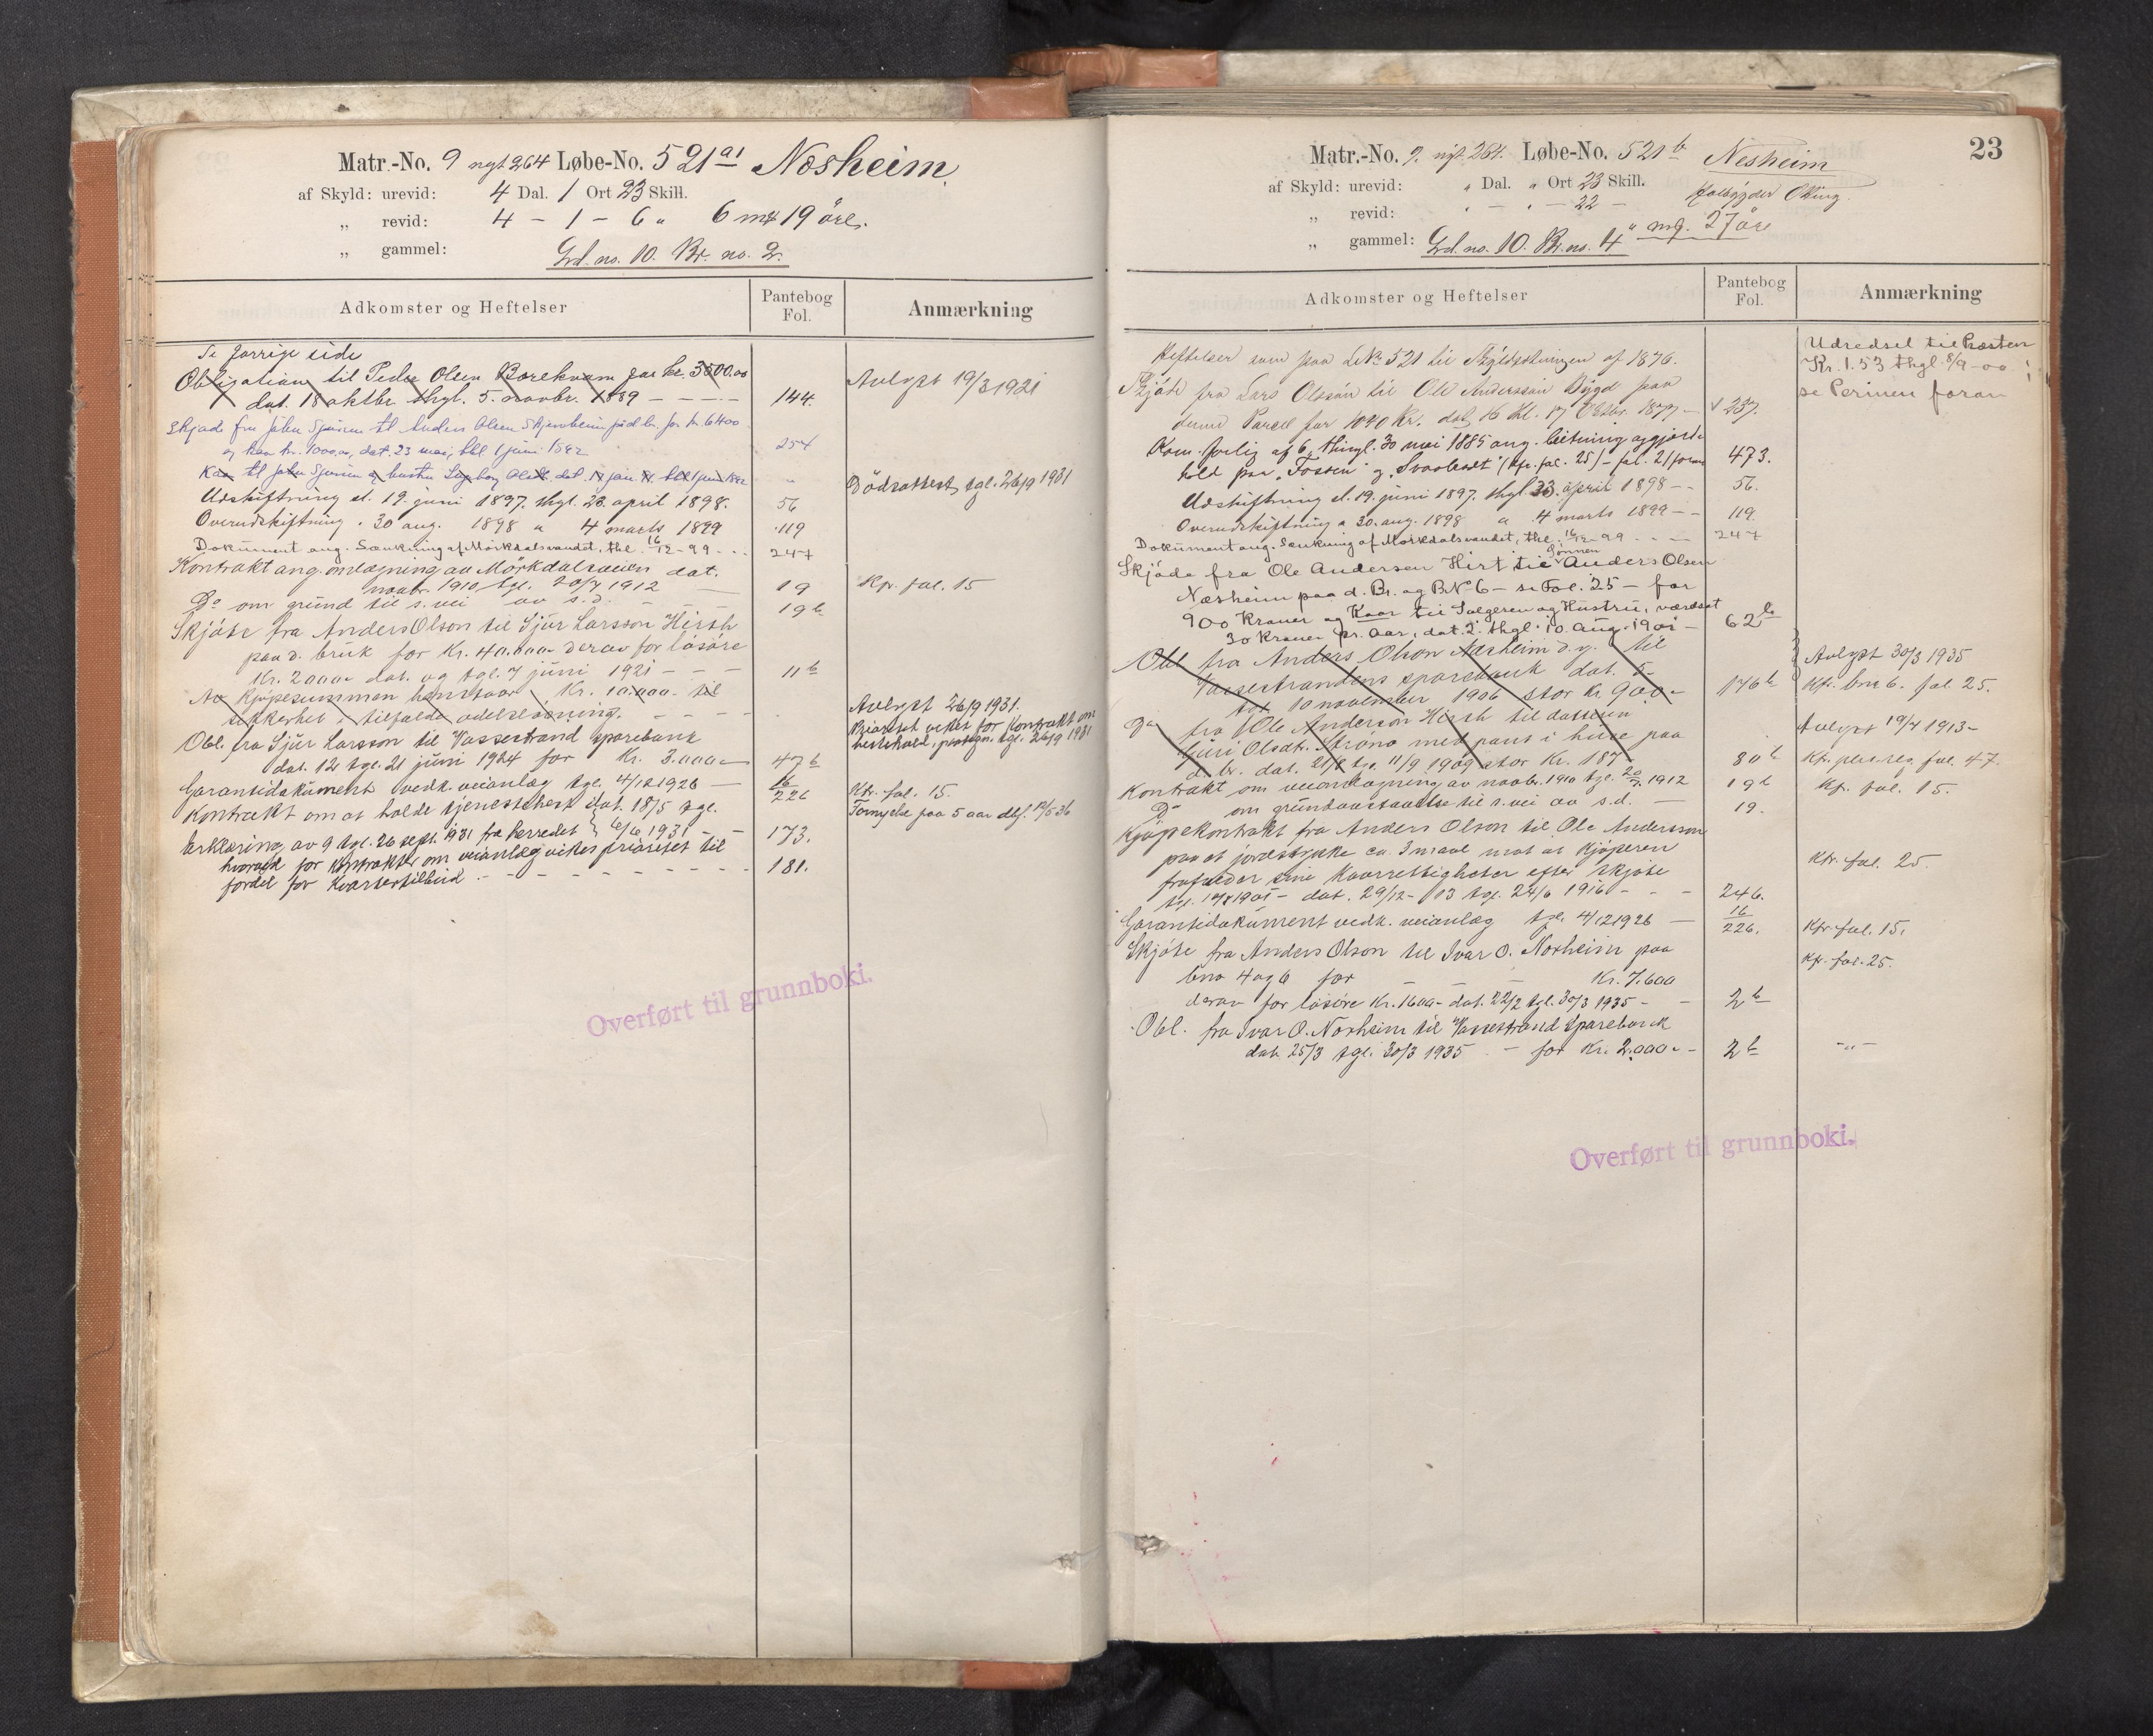 Matr.-No. 9 nyt 264 Løbe-No. 521 a1 Nesheim
af Skyld: urevid: 4 Dal. 1 Ort 23 Skill.
„ revid: 4 - 1 - 6 „ 6 mk 19 öre.
„ gammel: Grd. no. 10. Br. no. 2.
Adkomster og Heftelser
Pantebog Fol.
Anmærkning
Se forrige side
Obligation til Peder Olsen Borekvam for kr. 3500.00
dat. 18 oktbr. thgl. 5. novbr. 1889 - - - - 144. Avlyst 19/3 1921
Skjøde fra John Sjursen til Anders Olsen for kr. 6400
og kaar kr. 1000,00, dat. 23 mai, thl 1 juni 1892 254
Kaar til John Sjursen og hustru dat. jan. thl 1 juni 1892 „ Dödsattest tgl. 26/9 1931
Udskiftning sl. 19. juni 1897. thgl. 23. april 1898. 56
Overudskiftning „ 30 aug. 1898 „ 4 marts 1899 119
Dokument ang. Sænkning af Mörkdalsvandet, thl. 16/12-99 - - 247
Kontrakt ang. omlægning av Mörkdalsveien dat.
novbr. 1910 tgl. 20/7 1912 — 19 Kfr. fol. 15
Do om grund til s. vei av s. d. — — — 19 b
Skjöte fra Anders Olson til Sjur Larsson Hirth
paa d. bruk for Kr. 40.000 derav for lösöre
Kr. 2000- dat. og tgl. 7 juni 1921 - - - 11 b
Av Kjøpesummen henstaar Kr. 10.000- til
sikkerhet i tilfælde odelslösning. - - - - Avlyst 26/9 1931.
Obl. fra Sjur Larsson til Vassestrand sparebank
dat. 12 tgl. 21 juni 1924 for Kr. 3.000- 47 b Prioritet viker for Kontrakt om
hestehold, paategn. tgl. 26/9 1931
Garantidokument vedk. veianlæg tgl. 4/12 1926 — 16/226 Kfr. fol. 15.
Kontrakt om at holde tjenestehest dat. 18/5 tgl.
6/6 1931 - - 173. Fornyelse paa 5 aar
Erklæring av 9 tgl. 26 sept. 1931 fra herredet
hvorved for kontrakt om veianlæg vikes prioritet til
fordel for Kvartertilbud - - - - - - - - 181.
Overført til grunnboki.
23
Matr.-No. 9. nyt. 264. Løbe-No. 521 b Nesheim
af Skyld: urevid: „ Dal. „ Ort 23 Skill.
„ revid: „ - „ - 22 -
„ gammel: Grd. no. 10. Br. no. 4 „ mk. 27 öre
Adkomster og Heftelser
Pantebog Fol.
Anmærkning
Heftelser som paa LNo 521 til Skyldsetningen af 1876. Udredsel til Præsten
Kr. 1.53 thgl. 8/9-00
se Perinen foran
Skjøde fra Lars Olssön til Ole Anderssön Bygd paa
denne Parcel for 1040 Kr. dat. 16 thl. 17 Oktbr. 1877 - 237.
Kom. forlig af 6, thingl. 30 mai 1885 ang. beitning og gjerde-
hold paa „Fossen" og „Svaalandet" (kfr. fol. 25) - fol. 21 foran 473.
Udskiftning sl. 19. juni 1897. thgl 23. april 1898 - - 56.
Overudskiftning „ 30. aug. 1898 „ 4 marts 1899 - - 119.
Dokument ang. Sænkning af Mörkdalsvandet, thl. 16/12-99 - - - 247
Skjøde fra Ole Andersen Hirt til Sönnen Anders Olsen
Næsheim paa d. Br. og BNo 6 - se Fol. 25 - for
900 Kroner og Kaar til Sælgeren og Hustru, værdsat
30 Kroner pr. Aar, dat. 2. thgl. 10. Aug. 1901 - 62 b
Obl. fra Anders Olson Næsheim d. y. til
Vassestrandens sparebank dat. 5.
tgl. 10 november 1906 stor Kr. 900- 176 b Avlyst 30/3 1935
Kfr. bno 6. fol. 25.
Do fra Ole Anderson Hirth til datteren
Guri Olsdtr. Ströno med pant i huse paa
d. br. dat. 21/8 tgl. 11/9 1909 stor Kr. 187 80 b Avlyst 19/4 1913-
Kfr. pers. reg. fol. 47.
Kontrakt om veiomlægning av novbr. 1910 tgl. 20/7 1912 19 b Kfr. fol. 15.
Do om grundavstaaelse til s. vei av s.d. — 19.
Kjøpekontrakt fra Anders Olson til Ole Andersson
paa et jordstykke ca. 3 maal mot at Kjøperen
frafalder sine Kaarrettigheter efter skjöte
tgl. 10/8 1901 - dat. 29/12-13 tgl. 24/6 1916 - - - 246. Kfr. fol. 25.
Garantidokument vedk. veianlæg tgl. 4/12 1926 — 16/226. Kfr fol. 15.
Skjöte fra Anders Olson til Ivar O. Norheim paa
bno 4 og 6 for - - - Kr. 7.600
derav for lösöre Kr. 1600- dat. 22/2 tgl. 30/3 1935 - - 2 b Kfr. fol. 25.
Obl. fra Ivar O. Norheim til Vassestrand Sparebank
dat. 25/3 tgl. 30/3 1935 - for Kr. 2.000- - 2 b -„-
Overført til grunnboki.